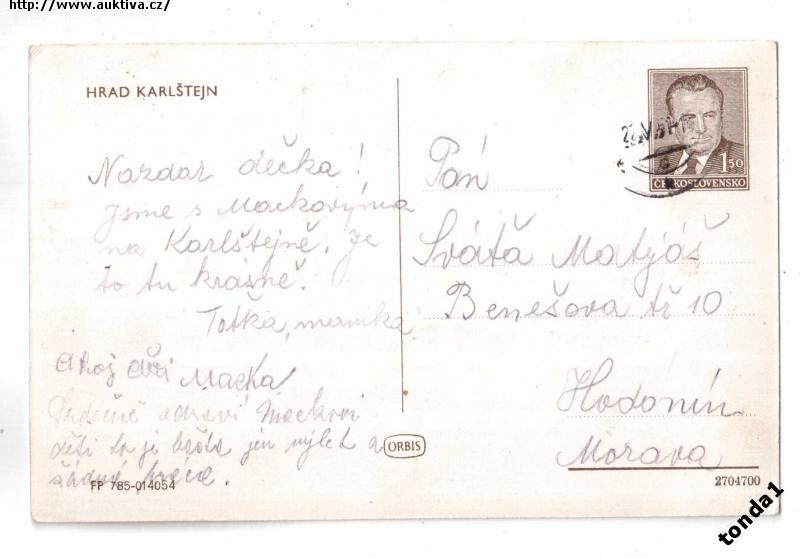 http://www.auktiva.cz/
HRAD KARLŠTEJN
Nazdar děcka!
Jsme s Mackovýma
na Karlštejně. Je
to tu krásně.
Totka, mamka
Ahoj Macka
Srdečně zdraví Mackovi
děti to je jen výlet a
žádná
FP 785-014054
ORBIS
1 50
ČESKOSLOVENSKO
Pán
Sváťa Matyjáš
Benešova tř 10
Hodonín
Morava
2704700
tonda1